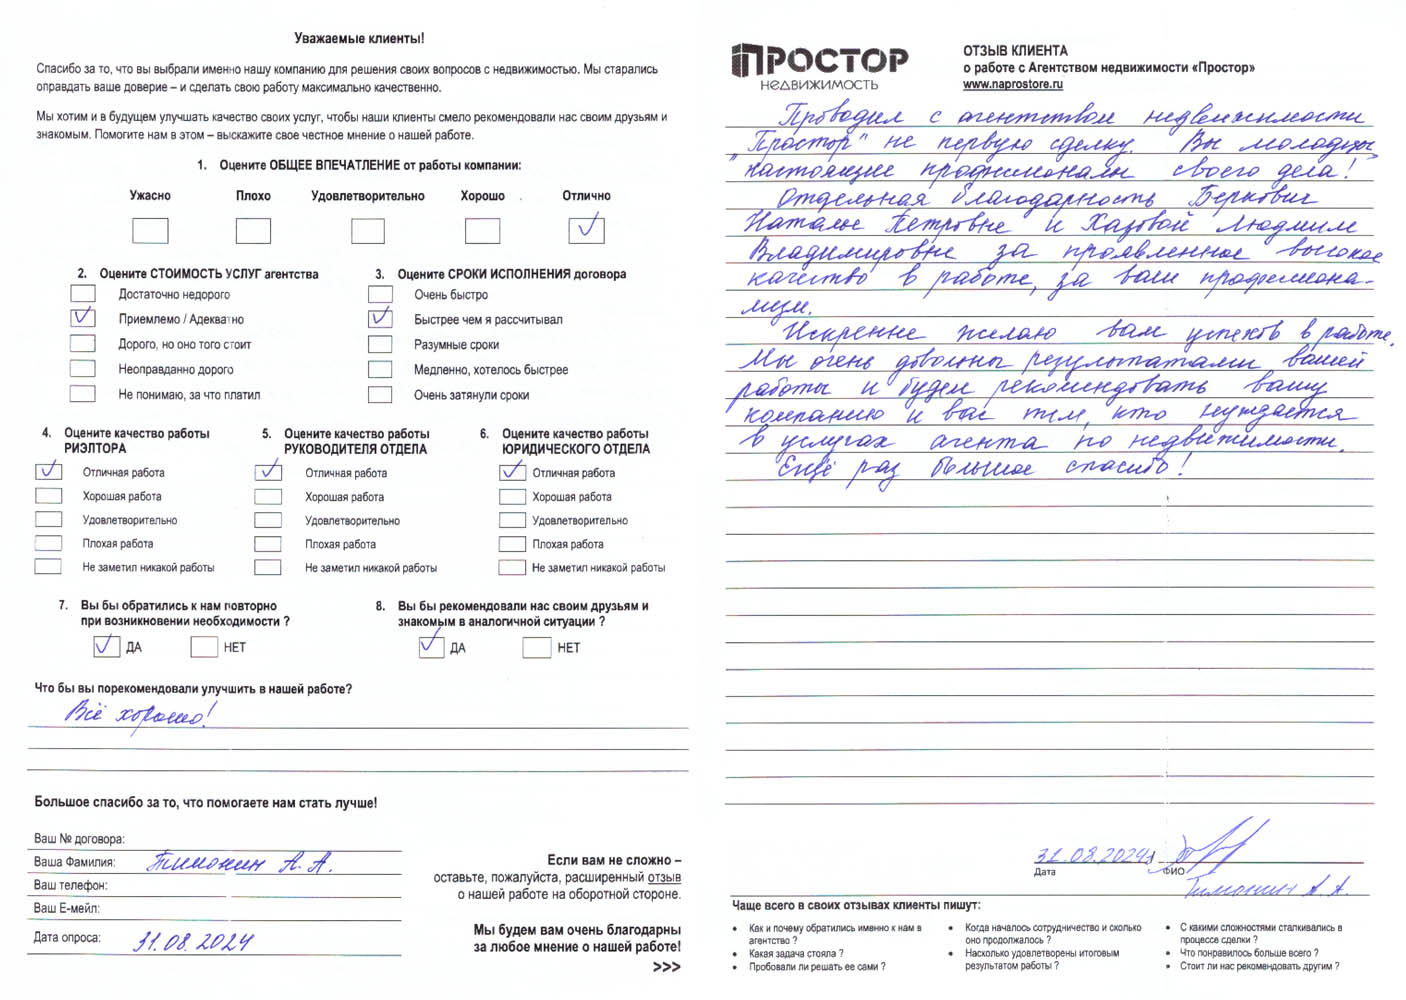 Уважаемые клиенты!
Спасибо за то, что вы выбрали именно нашу компанию для решения своих вопросов с недвижимостью. Мы старались
оправдать ваше доверие – и сделать свою работу максимально качественно.
Мы хотим и в будущем улучшать качество своих услуг, чтобы наши клиенты смело рекомендовали нас своим друзьям и
знакомым. Помогите нам в этом – выскажите свое честное мнение о нашей работе.
1. Оцените ОБЩЕЕ ВПЕЧАТЛЕНИЕ от работы компании:
Ужасно Плохо Удовлетворительно Хорошо Отлично
2. Оцените СТОИМОСТЬ УСЛУГ агентства
Достаточно недорого
Приемлемо / Адекватно
Дорого, но оно того стоит
Неоправданно дорого
Не понимаю, за что платил
3. Оцените СРОКИ ИСПОЛНЕНИЯ договора
Очень быстро
Быстрее чем я рассчитывал
Разумные сроки
Медленно, хотелось быстрее
Очень затянули сроки
4. Оцените качество работы
РИЭЛТОРА
Отличная работа
Хорошая работа
Удовлетворительно
Плохая работа
Не заметил никакой работы
5. Оцените качество работы
РУКОВОДИТЕЛЯ ОТДЕЛА
Отличная работа
Хорошая работа
Удовлетворительно
Плохая работа
Не заметил никакой работы
6. Оцените качество работы
ЮРИДИЧЕСКОГО ОТДЕЛА
Отличная работа
Хорошая работа
Удовлетворительно
Плохая работа
Не заметил никакой работы
7. Вы бы обратились к нам повторно
при возникновении необходимости ?
ДА НЕТ
8. Вы бы рекомендовали нас своим друзьям и
знакомым в аналогичной ситуации ?
ДА НЕТ
Что бы вы порекомендовали улучшить в нашей работе?
Всё хорошо!
Большое спасибо за то, что помогаете нам стать лучше!
Ваш № договора:
Ваша Фамилия: Тимонин А. А.
Ваш телефон:
Ваш Е-мейл:
Дата опроса: 31.08.2024
Если вам не сложно –
оставьте, пожалуйста, расширенный отзыв
о нашей работе на оборотной стороне.
Мы будем вам очень благодарны
за любое мнение о нашей работе!
>>>
ПРОСТОР
НЕДВИЖИМОСТЬ
ОТЗЫВ КЛИЕНТА
о работе с Агентством недвижимости «Простор»
www.naprostore.ru
Проводил с агентством недвижимости
"Простор" не первую сделку. Вы молодцы,
настоящие профессионалы своего дела!
Отдельная благодарность Беркович
Наталье Петровне и Хазовой Людмиле
Владимировне за проявленное высокое
качество в работе, за ваш профессиона-
лизм.
Искренне желаю вам успехов в работе.
Мы очень довольны результатами вашей
работы и будем рекомендовать вашу
компанию и вас тем, кто нуждается
в услугах агента по недвижимости.
Ещё раз большое спасибо!
31.08.2024
Дата ФИО
Тимонин А. А.
Чаще всего в своих отзывах клиенты пишут:
• Как и почему обратились именно к нам в
агентство ?
• Какая задача стояла ?
• Пробовали ли решать ее сами ?
• Когда началось сотрудничество и сколько
оно продолжалось ?
• Насколько удовлетворены итоговым
результатом работы ?
• С какими сложностями сталкивались в
процессе сделки ?
• Что понравилось больше всего ?
• Стоит ли нас рекомендовать другим ?